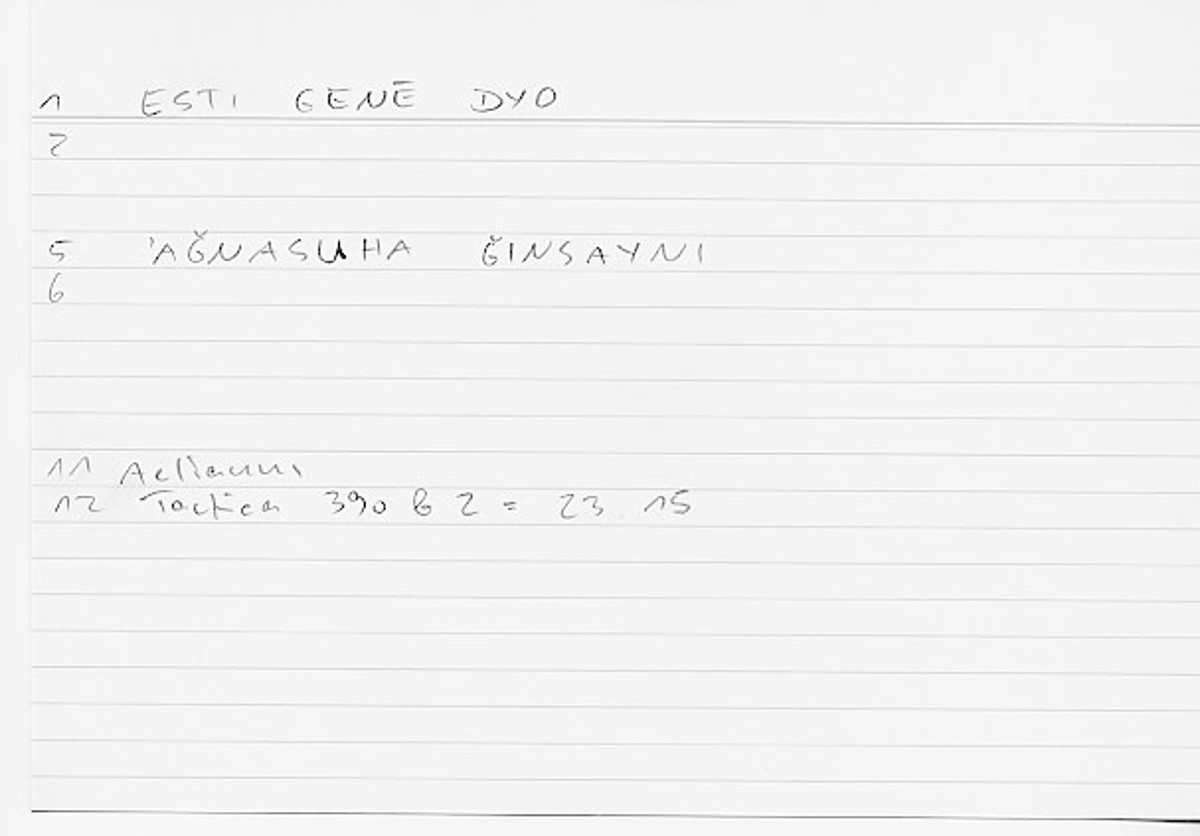 1 ESTI GENĒ DYO
2
5 'AǦNASUHA ǦINSAYNI
6
11 Aelianus
12 Tactica 390 b 2 = 23.15